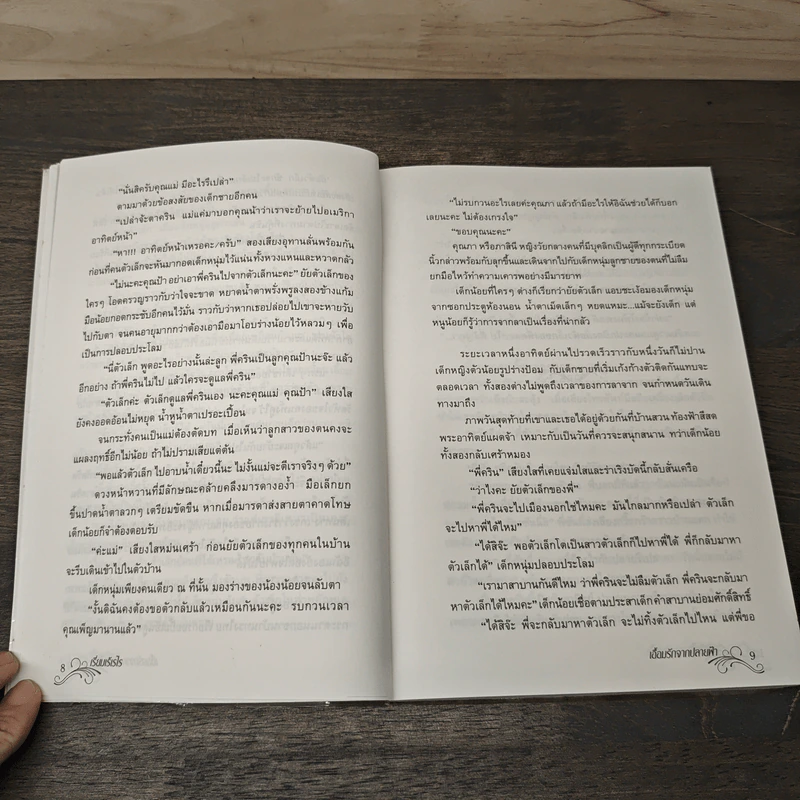 “นั่นสิครับคุณแม่ มีอะไรรึเปล่า”
ตามมาด้วยข้อสงสัยของเด็กชายอีกคน
“เปล่าจ้ะตาคริน แม่แค่มาบอกคุณน้าว่าเราจะย้ายไปอเมริกา
อาทิตย์หน้า”
“หา!!! อาทิตย์หน้าเหรอคะ/ครับ” สองเสียงอุทานลั่นพร้อมกัน
ก่อนที่คนตัวเล็กจะหันมากอดเด็กหนุ่มไว้แน่นทั้งหวงแหนและหวาดกลัว
“ไม่นะคะคุณป้า อย่าเอาพี่ครินไปจากตัวเล็กนะคะ” ยัยตัวเล็กของ
ใครๆ โอดครวญราวกับว่าใจจะขาด หยาดน้ำตาพรั่งพรูลงสองข้างแก้ม
มือน้อยกอดกระชับอีกคนไว้มั่น ราวกับว่าหากเธอปล่อยไปเขาจะหายวับ
ไปกับตา จนคนอายุมากกว่าต้องเอามือมาโอบร่างน้อยไว้หลวมๆ เพื่อ
เป็นการปลอบประโลม
“นี่ตัวเล็ก พูดอะไรอย่างนั้นล่ะลูก พี่ครินเป็นลูกคุณป้านะจ๊ะ แล้ว
อีกอย่าง ถ้าพี่ครินไม่ไป แล้วใครจะดูแลพี่คริน”
“ตัวเล็กค่ะ ตัวเล็กดูแลพี่ครินเอง นะคะคุณแม่ คุณป้า” เสียงใส
ยังคงออดอ้อนไม่หยุด น้ำหูน้ำตาเปรอะเปื้อน
จนกระทั่งคนเป็นแม่ต้องตัดบท เมื่อเห็นว่าลูกสาวของตนคงจะ
แผลงฤทธิ์อีกไม่น้อย ถ้าไม่ปรามเสียแต่ต้น
“พอแล้วตัวเล็ก ไปอาบน้ำเดี๋ยวนี้นะ ไม่งั้นแม่จะตีเราจริงๆ ด้วย”
ดวงหน้าหวานที่มีลักษณะคล้ายคลึงมารดางอง้ำ มือเล็กยก
ขึ้นปาดน้ำตาลวกๆ เตรียมขัดขืน หากเมื่อมารดาส่งสายตาคาดโทษ
เด็กน้อยก็จำต้องตอบรับ
“ค่ะแม่” เสียงใสหม่นเศร้า ก่อนยัยตัวเล็กของทุกคนในบ้าน
จะรีบเดินเข้าไปในตัวบ้าน
เด็กหนุ่มเพียงคนเดียว ณ ที่นั้น มองร่างของน้องน้อยจนลับตา
“งั้นดิฉันคงต้องขอตัวกลับแล้วเหมือนกันนะคะ รบกวนเวลา
คุณเพ็ญมานานแล้ว”
8 เรี่ยมเรไร
“ไม่รบกวนอะไรเลยค่ะคุณภา แล้วถ้ามีอะไรให้อิฉันช่วยได้ก็บอก
เลยนะคะ ไม่ต้องเกรงใจ”
“ขอบคุณนะคะ”
คุณภา หรือภาสินี หญิงวัยกลางคนที่มีบุคลิกเป็นผู้ดีทุกกระเบียด
นิ้วกล่าวพร้อมกับลุกขึ้นและเดินจากไปกับเด็กหนุ่มลูกชายของตนที่ไม่ลืม
ยกมือไหว้ทำความเคารพอย่างมีมารยาท
เด็กน้อยที่ใครๆ ต่างก็เรียกว่ายัยตัวเล็ก แอบชะเง้อมองเด็กหนุ่ม
จากซอกประตูห้องนอน น้ำตาเม็ดเล็กๆ หยดแหมะ...แม้จะยังเด็ก แต่
หนูน้อยก็รู้ว่าการจากลาเป็นเรื่องที่น่ากลัว
ระยะเวลาหนึ่งอาทิตย์ผ่านไปรวดเร็วราวกับหนึ่งวันก็ไม่ปาน
เด็กหญิงตัวน้อยรูปร่างป้อม กับเด็กชายที่เริ่มเก้งก้างตัวติดกันแทบจะ
ตลอดเวลา ทั้งสองต่างไม่พูดถึงเวลาของการลาจาก จนกำหนดวันเดิน
ทางมาถึง
ภาพวันสุดท้ายที่เขาและเธอได้อยู่ด้วยกันที่บ้านสวน ท้องฟ้าสีสด
พระอาทิตย์แผดจ้า เหมาะกับเป็นวันที่ควรจะสนุกสนาน ทว่าเด็กน้อย
ทั้งสองกลับเศร้าหมอง
“พี่คริน” เสียงใสที่เคยแจ่มใสและร่าเริงบัดนี้กลับสั่นเครือ
“ว่าไงคะ ยัยตัวเล็กของพี่”
“พี่ครินจะไปเมืองนอกใช่ไหมคะ มันไกลมากหรือเปล่า ตัวเล็ก
จะไปหาพี่ได้ไหม”
“ได้สิจ๊ะ พอตัวเล็กโตเป็นสาวตัวเล็กก็ไปหาพี่ได้ พี่ก็กลับมาหา
ตัวเล็กได้” เด็กหนุ่มปลอบประโลม
“เรามาสาบานกันดีไหม ว่าพี่ครินจะไม่ลืมตัวเล็ก พี่ครินจะกลับมา
หาตัวเล็กได้ไหมคะ” เด็กน้อยเชื่อตามประสาเด็ก คำสาบานย่อมศักดิ์สิทธิ์
“ได้สิจ๊ะ พี่จะกลับมาหาตัวเล็ก จะไม่ทิ้งตัวเล็กไปไหน แต่พี่ขอ
เอื้อมรักจากปลายฟ้า 9